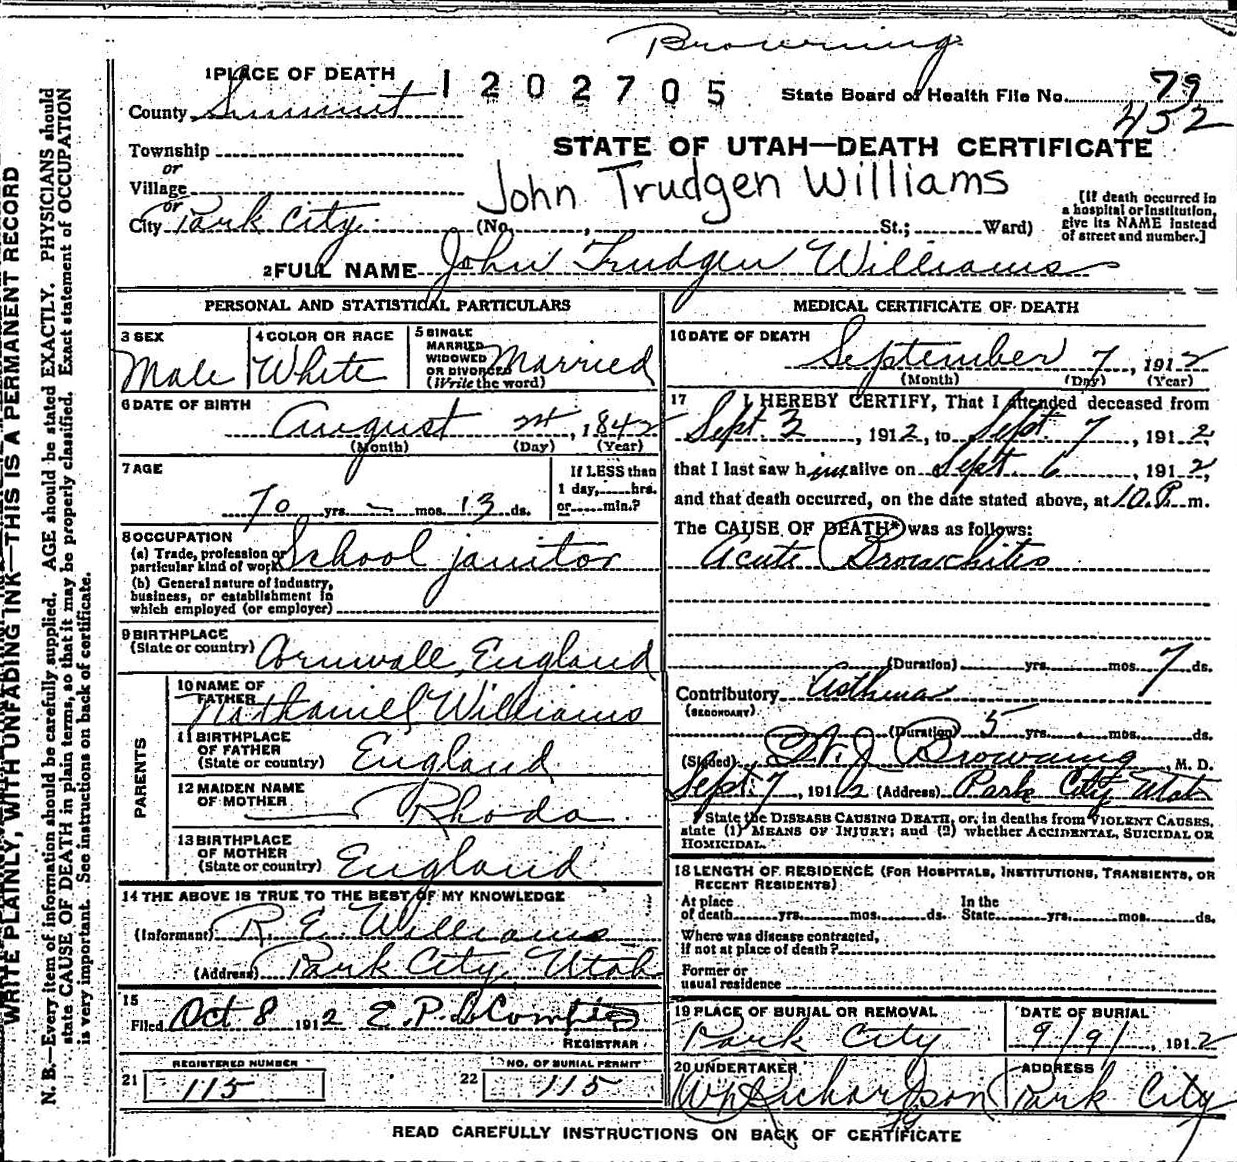 Browning
1 PLACE OF DEATH
1202705
State Board of Health File No. 79
452
County Summit
STATE OF UTAH—DEATH CERTIFICATE
Township
or
Village
John Trudgen Williams
or
City Park City. (No. , St.; Ward)
[If death occurred in a hospital or institution, give its NAME instead of street and number.]
2 FULL NAME John Trudgen Williams
PERSONAL AND STATISTICAL PARTICULARS
3 SEX
Male
4 COLOR OR RACE
White
5 SINGLE
MARRIED
WIDOWED
OR DIVORCED
(Write the word)
Married
6 DATE OF BIRTH
August 24, 1842
(Month) (Day) (Year)
7 AGE
70 yrs. — mos. 13 ds.
If LESS than
1 day, hrs.
or min.?
8 OCCUPATION
(a) Trade, profession or
particular kind of work School janitor
(b) General nature of industry,
business, or establishment in
which employed (or employer)
9 BIRTHPLACE
(State or country) Cornwall, England
PARENTS
10 NAME OF
FATHER
Nathaniel Williams
11 BIRTHPLACE
OF FATHER
(State or country) England
12 MAIDEN NAME
OF MOTHER — Rhoda
13 BIRTHPLACE
OF MOTHER
(State or country) England
14 THE ABOVE IS TRUE TO THE BEST OF MY KNOWLEDGE
(Informant) R. E. Williams
(Address) Park City Utah
15
Filed Oct 8 1912 E. P.
REGISTRAR
REGISTERED NUMBER
21 115
NO. OF BURIAL PERMIT
22 115
MEDICAL CERTIFICATE OF DEATH
16 DATE OF DEATH
September 7, 1912
(Month) (Day) (Year)
17 I HEREBY CERTIFY, That I attended deceased from
Sept. 3, 1912, to Sept. 7, 1912,
that I last saw him alive on Sept 6, 1912,
and that death occurred, on the date stated above, at 10 P. m.
The CAUSE OF DEATH* was as follows:
Acute Bronchitis
(Duration) yrs. mos. 7 ds.
Contributory Asthma
(SECONDARY)
(Duration) 5 yrs. mos. ds.
(Signed) J Browning, M. D.
Sept. 7, 1912 (Address) Park City Utah
State the DISEASE CAUSING DEATH, or, in deaths from VIOLENT CAUSES,
state (1) MEANS OF INJURY; and (2) whether ACCIDENTAL, SUICIDAL OR
HOMICIDAL.
18 LENGTH OF RESIDENCE (FOR HOSPITALS, INSTITUTIONS, TRANSIENTS, OR
RECENT RESIDENTS)
At place
of death yrs. mos. ds.
In the
State yrs. mos. ds.
Where was disease contracted,
if not at place of death?
Former or
usual residence
19 PLACE OF BURIAL OR REMOVAL
Park City
DATE OF BURIAL
9/9/, 1912
20 UNDERTAKER
Wm Richardson
ADDRESS
Park City
79
READ CAREFULLY INSTRUCTIONS ON BACK OF CERTIFICATE
WRITE PLAINLY, WITH UNFADING INK—THIS IS A PERMANENT RECORD
N. B.—Every item of information should be carefully supplied. AGE should be stated EXACTLY. PHYSICIANS should
state CAUSE OF DEATH in plain terms, so that it may be properly classified. Exact statement of OCCUPATION
is very important. See instructions on back of certificate.